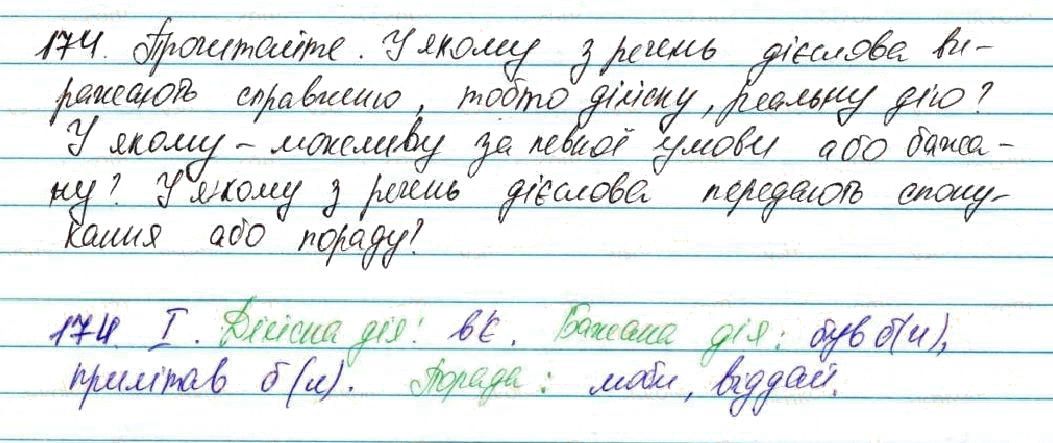 174. Прочитайте. У якому з речень дієслова ви-
ражають справжню, тобто дійсну, реальну дію?
У якому – можливу за певної умови або бажа-
ну? У якому з речень дієслова передають спону-
кання або пораду?
174. I. Дійсна дія: в'є. Бажана дія: був б(и),
прилітав б(и). Порада: люби, віддай.